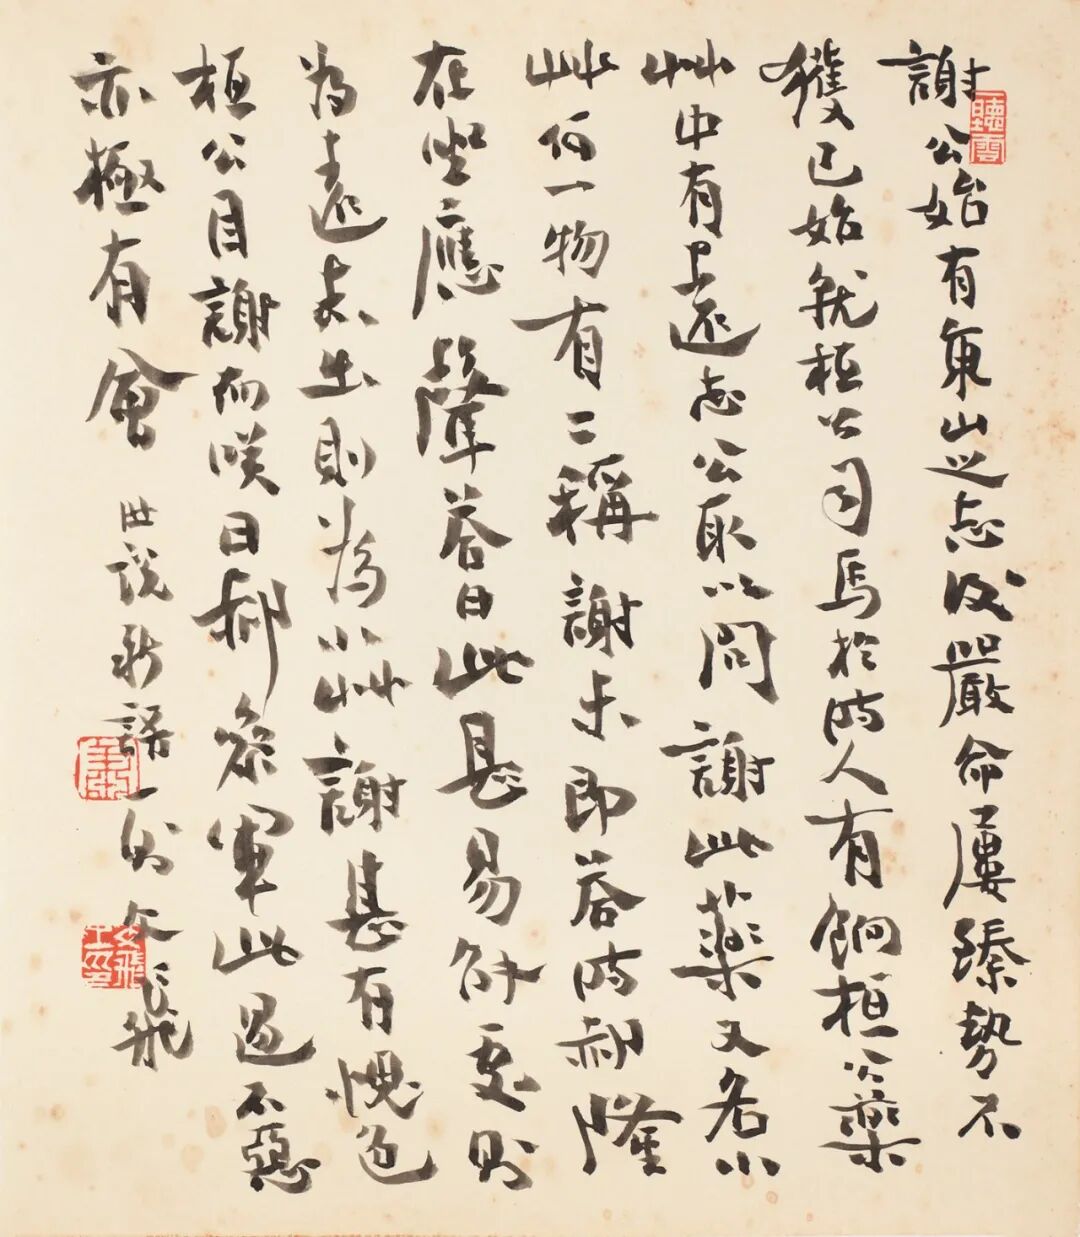 謝公始有東山之志後嚴命屢臻勢不
獲已始就桓公司馬於時人有餉桓公藥
艸中有遠志公取以問謝此藥又名小
艸何一物有二稱謝未即荅時郝隆
在坐應聲荅曰此甚易解處則
為遠志出則為小艸謝甚有愧色
桓公目謝而咲曰郝參軍此過不惡
亦極有會 世說新語一則
聽雲